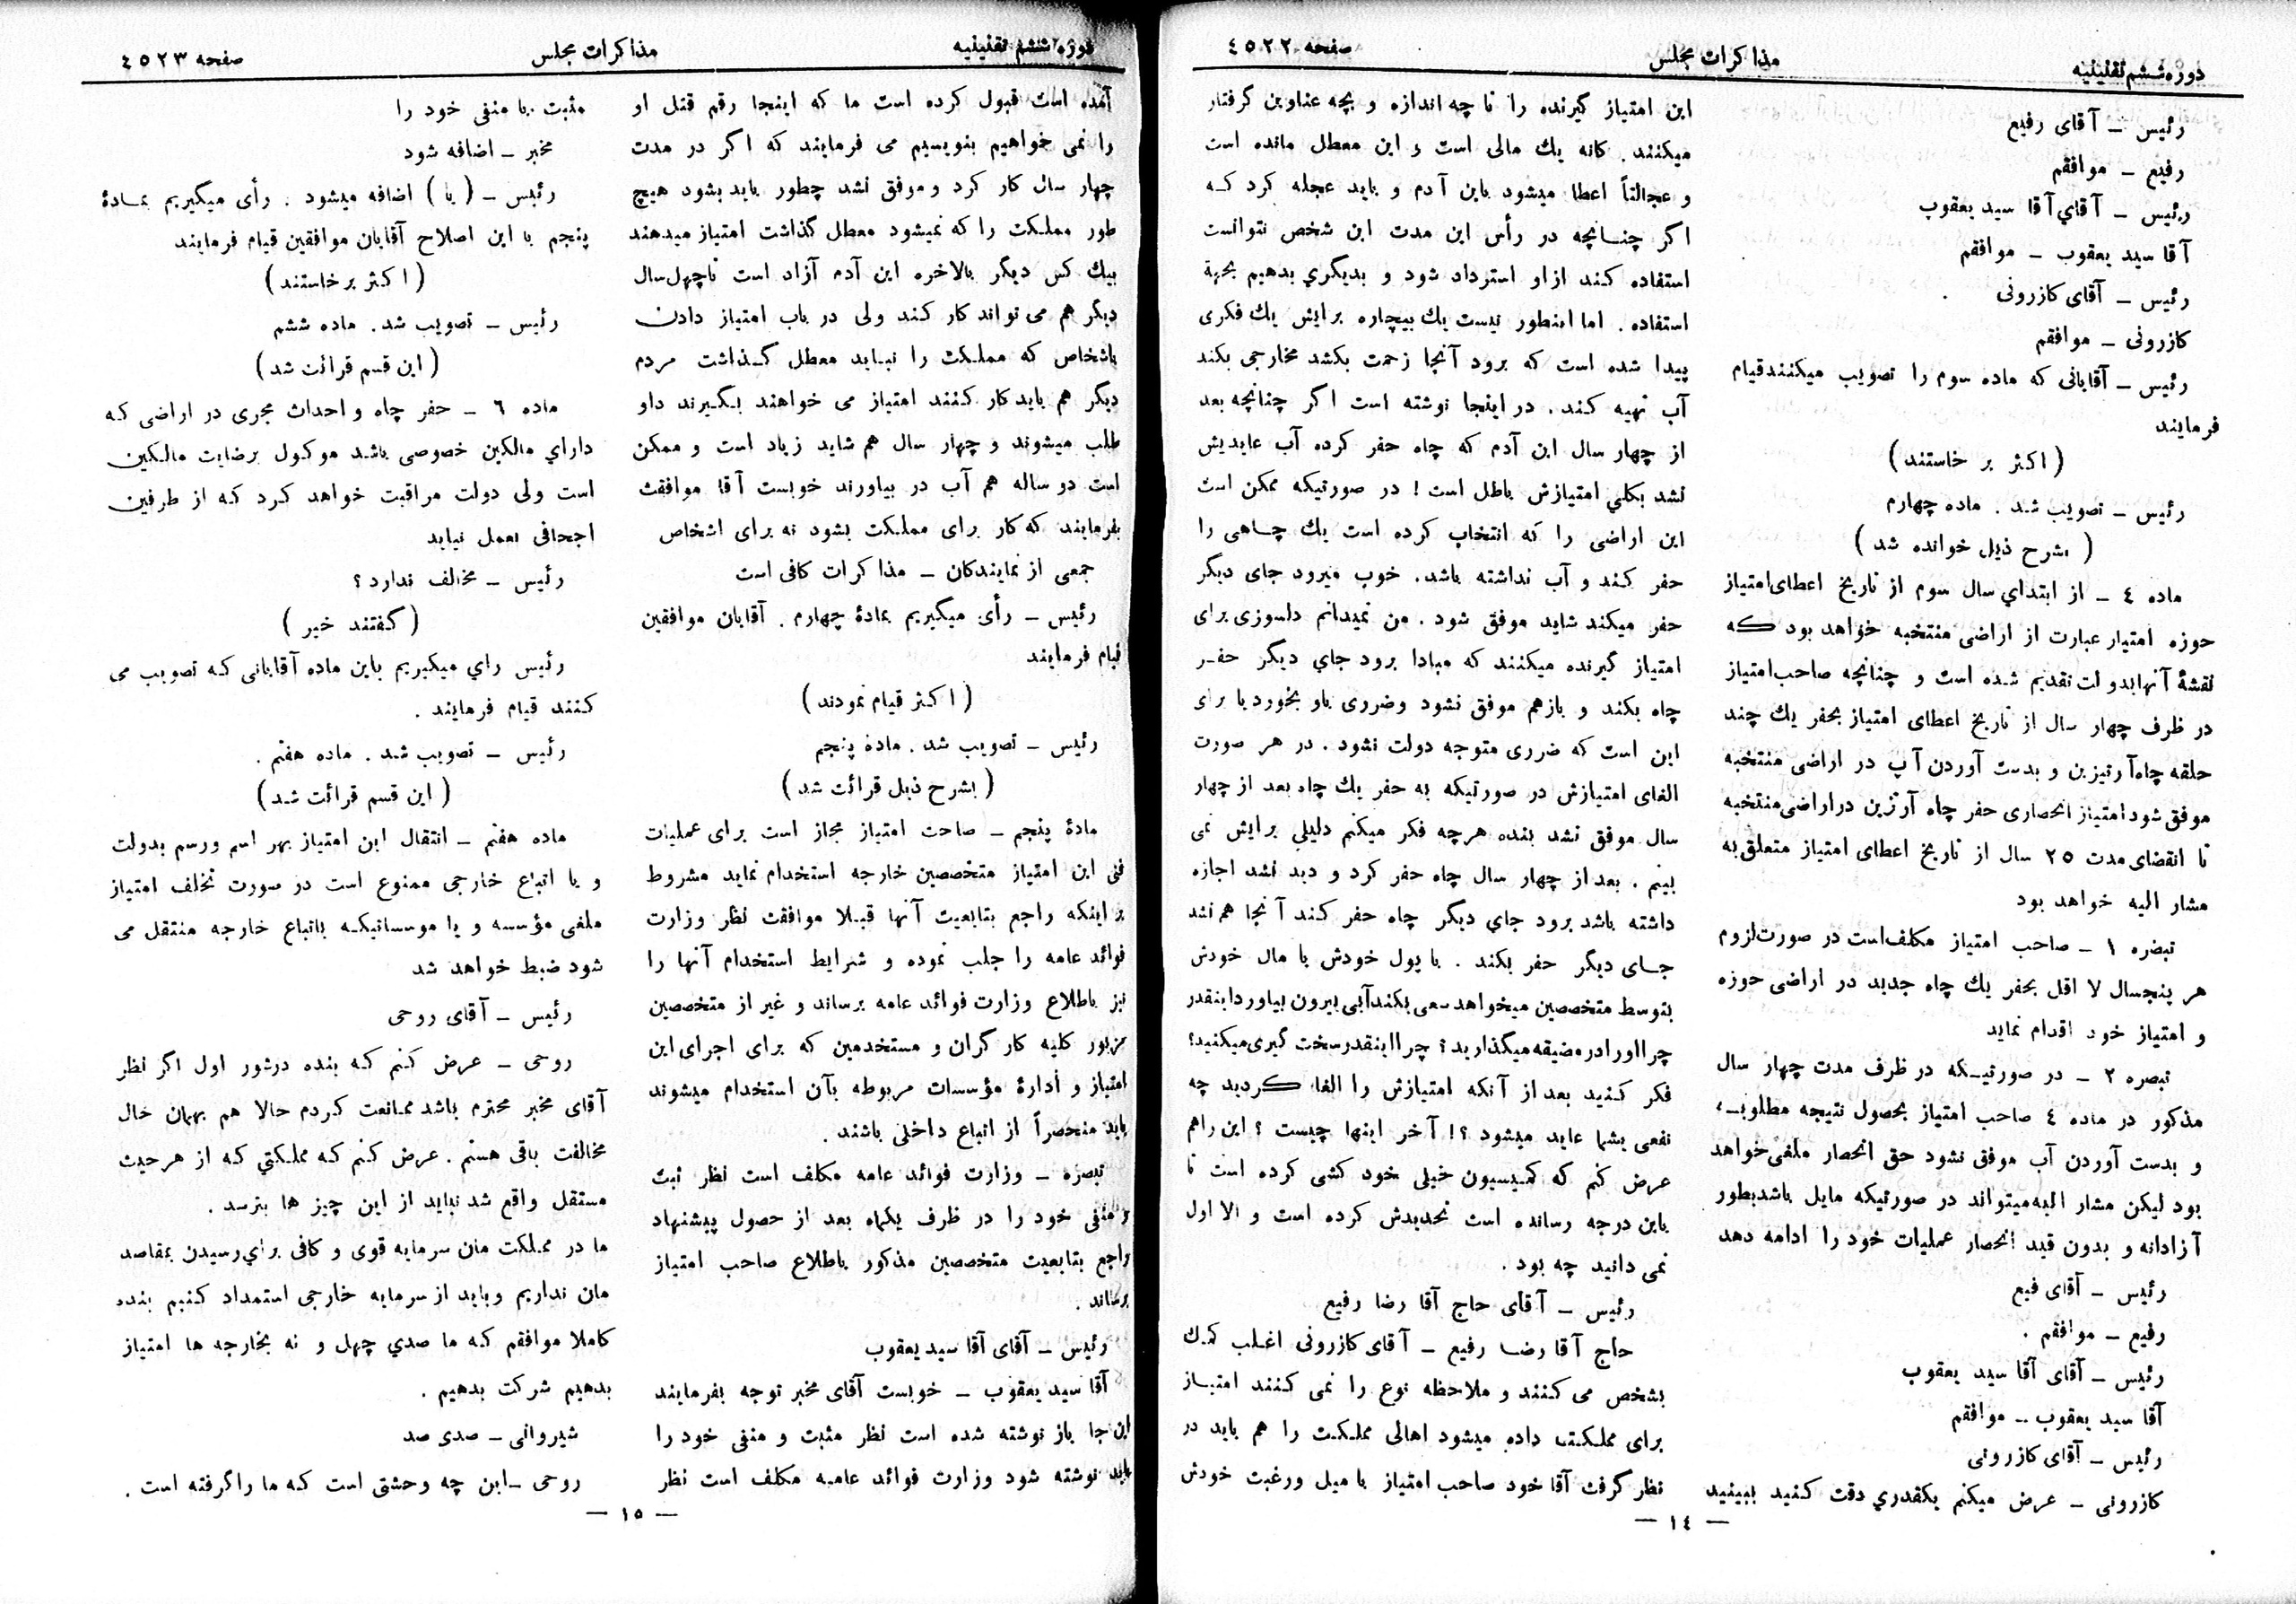 دوره ششم تقنینیه
مذاکرات مجلس
صفحه ٤٥٢٢
رئیس ـ آقای رفیع
رفیع ـ موافقم
رئیس ـ آقاي آقا سید یعقوب
آقا سید یعقوب ـ موافقم
رئیس ـ آقای کازرونی
کازرونی ـ موافقم
رئیس ـ آقایانی که ماده سوم را تصویب میکنند قیام
فرمایند
( اکثر بر خاستند )
رئیس ـ تصویب شد . ماده چهارم
( بشرح ذیل خوانده شد )
ماده ٤ ـ از ابتداي سال سوم از تاریخ اعطای امتیاز
حوزه امتیاز عبارت از اراضی منتخبه خواهد بود که
نقشۀ آنها بدولت تقدیم شده است و چنانچه صاحب امتیاز
در ظرف چهار سال از تاریخ اعطای امتیاز بحفر یك چند
حلقه چاه آرتیزین و بدست آوردن آب در اراضی منتخبه
موفق شود امتیاز انحصاری حفر چاه آرتزین در اراضی منتخبه
تا انقضای مدت ٢٥ سال از تاریخ اعطای امتیاز متعلق به
مشار الیه خواهد بود
تبصره ١ ـ صاحب امتیاز مکلف است در صورت لزوم
هر پنجسال لا اقل بحفر یك چاه جدید در اراضی حوزه
و امتیاز خود اقدام نماید
تبصره ٢ ـ در صورتیکه در ظرف مدت چهار سال
مذکور در ماده ٤ صاحب امتیاز بحصول نتیجه مطلوبه
و بدست آوردن آب موفق نشود حق انحصار ملغی خواهد
بود لیکن مشار الیه میتواند در صورتیکه مایل باشد بطور
آزادانه و بدون قید انحصار عملیات خود را ادامه دهد
رئیس ـ آقای فیع
رفیع ـ موافقم .
رئیس ـ آقای آقا سید یعقوب
آقا سید یعقوب ـ موافقم
رئیس ـ آقای کازرونی
کازرونی ـ عرض میکنم یکقدري دقت کنید ببینید
این امتیاز گیرنده را تا چه اندازه و بچه عناوین گرفتار
میکنند . کانه یك مالی است و این معطل مانده است
و عجالتاً اعطا میشود باین آدم و باید عجله کرد که
اگر چنانچه در رأس این مدت این شخص نتوانست
استفاده کند از او استرداد شود و بدیگري بدهیم بجهة
استفاده . اما اینطور نیست یك بیچاره برایش یك فکری
پیدا شده است که برود آنجا زحمت بکشد مخارجی بکند
آب تهیه کند . در اینجا نوشته است اگر چنانچه بعد
از چهار سال این آدم که چاه حفر کرده آب عایدیش
نشد بکلي امتیازش باطل است ! در صورتیکه ممکن است
این اراضی را که انتخاب کرده است یك چاهی را
حفر کند و آب نداشته باشد . خوب میرود جای دیگر
حفر میکند شاید موفق شود . من نمیدانم دلسوزی برای
امتیاز گیرنده میکنند که مبادا برود جاي دیگر حفر
چاه بکند و بازهم موفق نشود وضرری باو بخورد یا برای
این است که ضرری متوجه دولت نشود . در هر صورت
الغای امتیازش در صورتیکه به حفر یك چاه بعد از چهار
سال موفق نشد بنده هرچه فکر میکنم دلیلي برایش نمی
بینم . بعد از چهار سال چاه حفر کرد و دید نشد اجازه
داشته باشد برود جاي دیگر چاه حفر کند آنجا هم نشد
جای دیگر حفر بکند . با پول خودش با مال خودش
بتوسط متخصصین میخواهد سعی بکند آبی بیرون بیاورد اینقدر
چرا او را در مضیقه میگذارید ؟ چرا اینقدر سخت گیری میکنید ؟
فکر کنید بعد از آنکه امتیازش را الغا کردید چه
نفعی بشما عاید میشود ؟! آخر اینها چیست ؟ این راهم
عرض کنم که کمیسیون خیلی خود کشی کرده است تا
باین درجه رسانده است تحدیدش کرده است و الا اول
نمی دانید چه بود .
رئیس ـ آقای حاج آقا رضا رفیع
حاج آقا رضا رفیع ـ آقای کازرونی اغلب کمک
بشخص می کنند و ملاحظه نوع را نمی کنند امتیاز
برای مملکت داده میشود اهالی مملکت را هم باید در
نظر گرفت آقا خود صاحب امتیاز با میل ورغبت خودش
— ١٤ —
دوره ششم تقنینیه
مذاکرات مجلس
صفحه ٤٥٢٣
آمده است قبول کرده است ما که اینجا رقم قتل او
را نمی خواهیم بنویسیم می فرمایند که اگر در مدت
چهار سال کار کرد و موفق نشد چطور باید بشود هیچ
طور مملکت را که نمیشود معطل گذاشت امتیاز میدهند
بیك کس دیگر بالاخره این آدم آزاد است تا چهل سال
دیگر هم می تواند کار کند ولی در باب امتیاز دادن
باشخاص که مملکت را نباید معطل گذاشت مردم
دیگر هم باید کار کنند امتیاز می خواهند بگیرند داو
طلب میشوند و چهار سال هم شاید زیاد است و ممکن
است دو ساله هم آب در بیاورند خوبست آقا موافقت
بفرمایند که کار برای مملکت بشود نه برای اشخاص
جمعی از نمایندگان ـ مذاکرات کافی است
رئیس ـ رأی میگیریم بمادۀ چهارم . آقایان موافقین
قیام فرمایند
( اکثر قیام نمودند )
رئیس ـ تصویب شد . ماده پنجم
( بشرح ذیل قرائت شد )
مادۀ پنجم ـ صاحب امتیاز مجاز است برای عملیات
فنی این امتیاز متخصصین خارجه استخدام نماید مشروط
بر اینکه راجع بتابعیت آنها قبلا موافقت نظر وزارت
فوائد عامه را جلب نموده و شرایط استخدام آنها را
نیز باطلاع وزارت فوائد عامه برساند و غیر از متخصصین
مزبور کلیه کارگران و مستخدمین که برای اجرای این
امتیاز و ادارۀ مؤسسات مربوطه بآن استخدام میشوند
باید منحصراً از اتباع داخلی باشند .
تبصره ـ وزارت فوائد عامه مکلف است نظر ثبت
و منفی خود را در ظرف یکماه بعد از حصول پیشنهاد
راجع بتابعیت متخصصین مذکور باطلاع صاحب امتیاز
برساند .
رئیس ـ آقای آقا سید یعقوب
آقا سید یعقوب ـ خوبست آقای مخبر توجه بفرمایند
این جا باز نوشته شده است نظر مثبت و منفی خود را
باید نوشته شود وزارت فوائد عامه مکلف است نظر
مثبت یا منفی خود را
مخبر ـ اضافه شود
رئیس ـ ( یا ) اضافه میشود . رأی میگیریم بمادۀ
پنجم با این اصلاح آقایان موافقین قیام فرمایند
( اکثر برخاستند )
رئیس ـ تصویب شد . ماده ششم
( این قسم قرائت شد )
ماده ٦ ـ حفر چاه و احداث مجری در اراضی که
داراي مالکین خصوصی باشد موکول برضایت مالکین
است ولی دولت مراقبت خواهد کرد که از طرفین
اجحافی بعمل نیاید
رئیس ـ مخالف ندارد ؟
( گفتند خیر )
رئیس راي میگیریم باین ماده آقایانی که تصویب می
کنند قیام فرمایند .
رئیس ـ تصویب شد . ماده هفتم .
( این قسم قرائت شد )
ماده هفتم ـ انتقال این امتیاز بهر اسم ورسم بدولت
و یا اتباع خارجی ممنوع است در صورت تخلف امتیاز
ملغی مؤسسه و یا موسساتیکه باتباع خارجه منتقل می
شود ضبط خواهد شد
رئیس ـ آقای روحی
روحی ـ عرض کنم که بنده در شور اول اگر نظر
آقای مخبر محترم باشد ممانعت کردم حالا هم بهمان حال
مخالفت باقی هستم . عرض کنم که مملکتي که از هر حیث
مستقل واقع شد نباید از این چیز ها بترسد .
ما در مملکت مان سرمایه قوی و کافی براي رسیدن بمقاصد
مان نداریم و باید از سرمایه خارجی استمداد کنیم بنده
کاملا موافقم که ما صدي چهل و نه بخارجه ها امتیاز
بدهیم شرکت بدهیم .
شیروانی ـ صدی صد
روحی ـ این چه وحشتی است که ما را گرفته است .
— ١٥ —